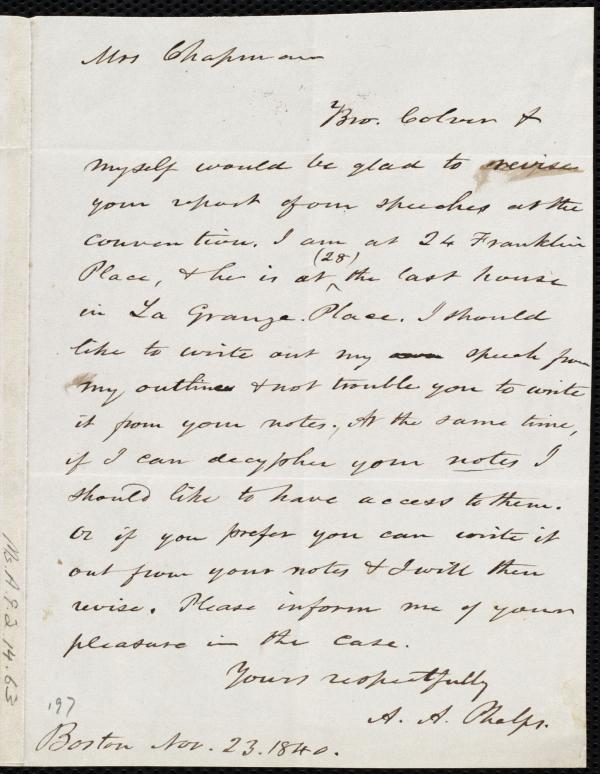 Mrs Chapman
Bro. Colver &
myself would be glad to revise
your report of our speeches at the
convention. I am at 24 Franklin
Place, & he is at (28) the last house
in La Grange. Place. I should
like to write out my speech from
my outlines & not trouble you to write
it from your notes. At the same time,
if I can decypher your notes I
should like to have access to them.
Or if you prefer you can write it
out from your notes & I will then
revise. Please inform me of your
pleasure in the case.
Yours respectfully
A. A. Phelps.
Boston Nov. 23. 1840.
197
Ms.A.9.2.14.63